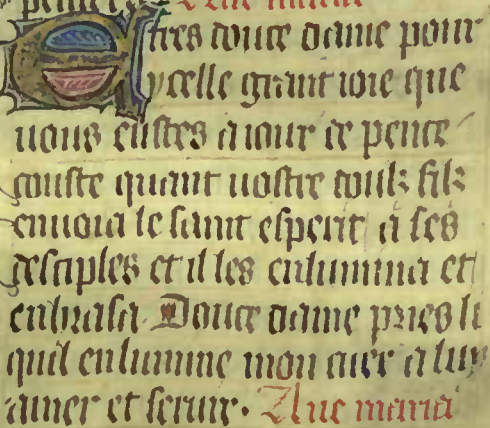 Aue maria
E tres douce dame pour
ycelle grant ioie que
uous eustes a iour de pente
couste quant uostre doulz filz
enuoia le saint esperit a ses
desciples et il les enlumina et
enbrasa. Douce dame pries li
quil enlumine mon cuer a luy
amer et seruir. Aue maria